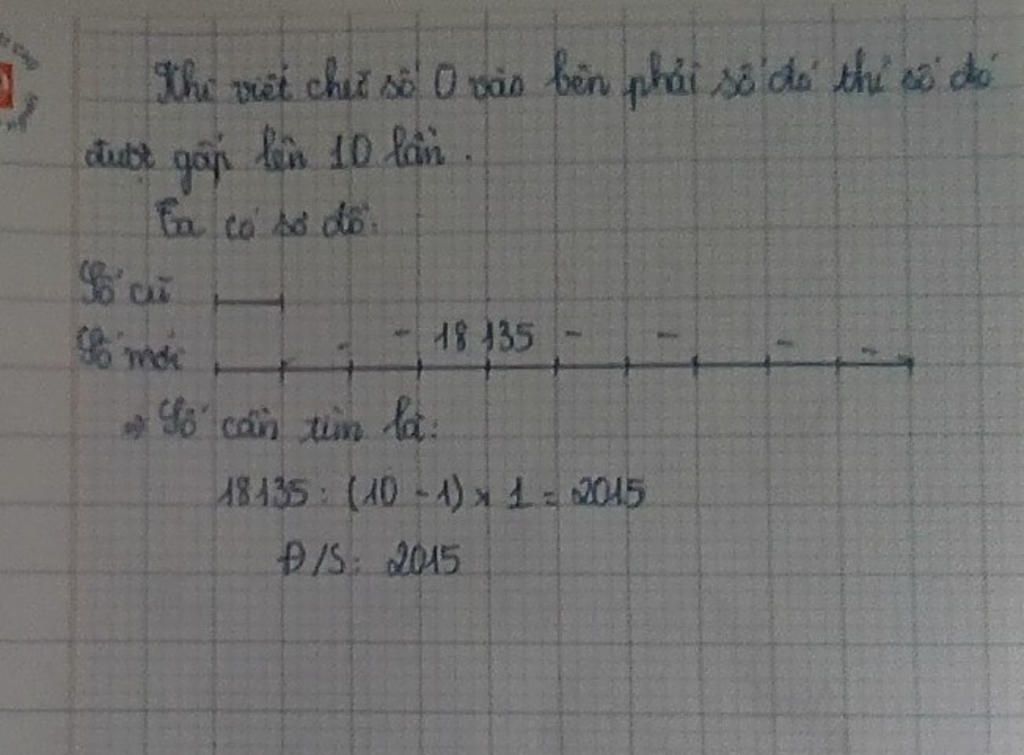 Khi viết chữ số 0 vào bên phải số đó thì số đó
được gấp lên 10 lần.
Ta có sơ đồ:
Số cũ
18135
Số mới
⇒ Số cần tìm là:
18135 : (10 - 1) x 1 = 2015
Đ/S: 2015